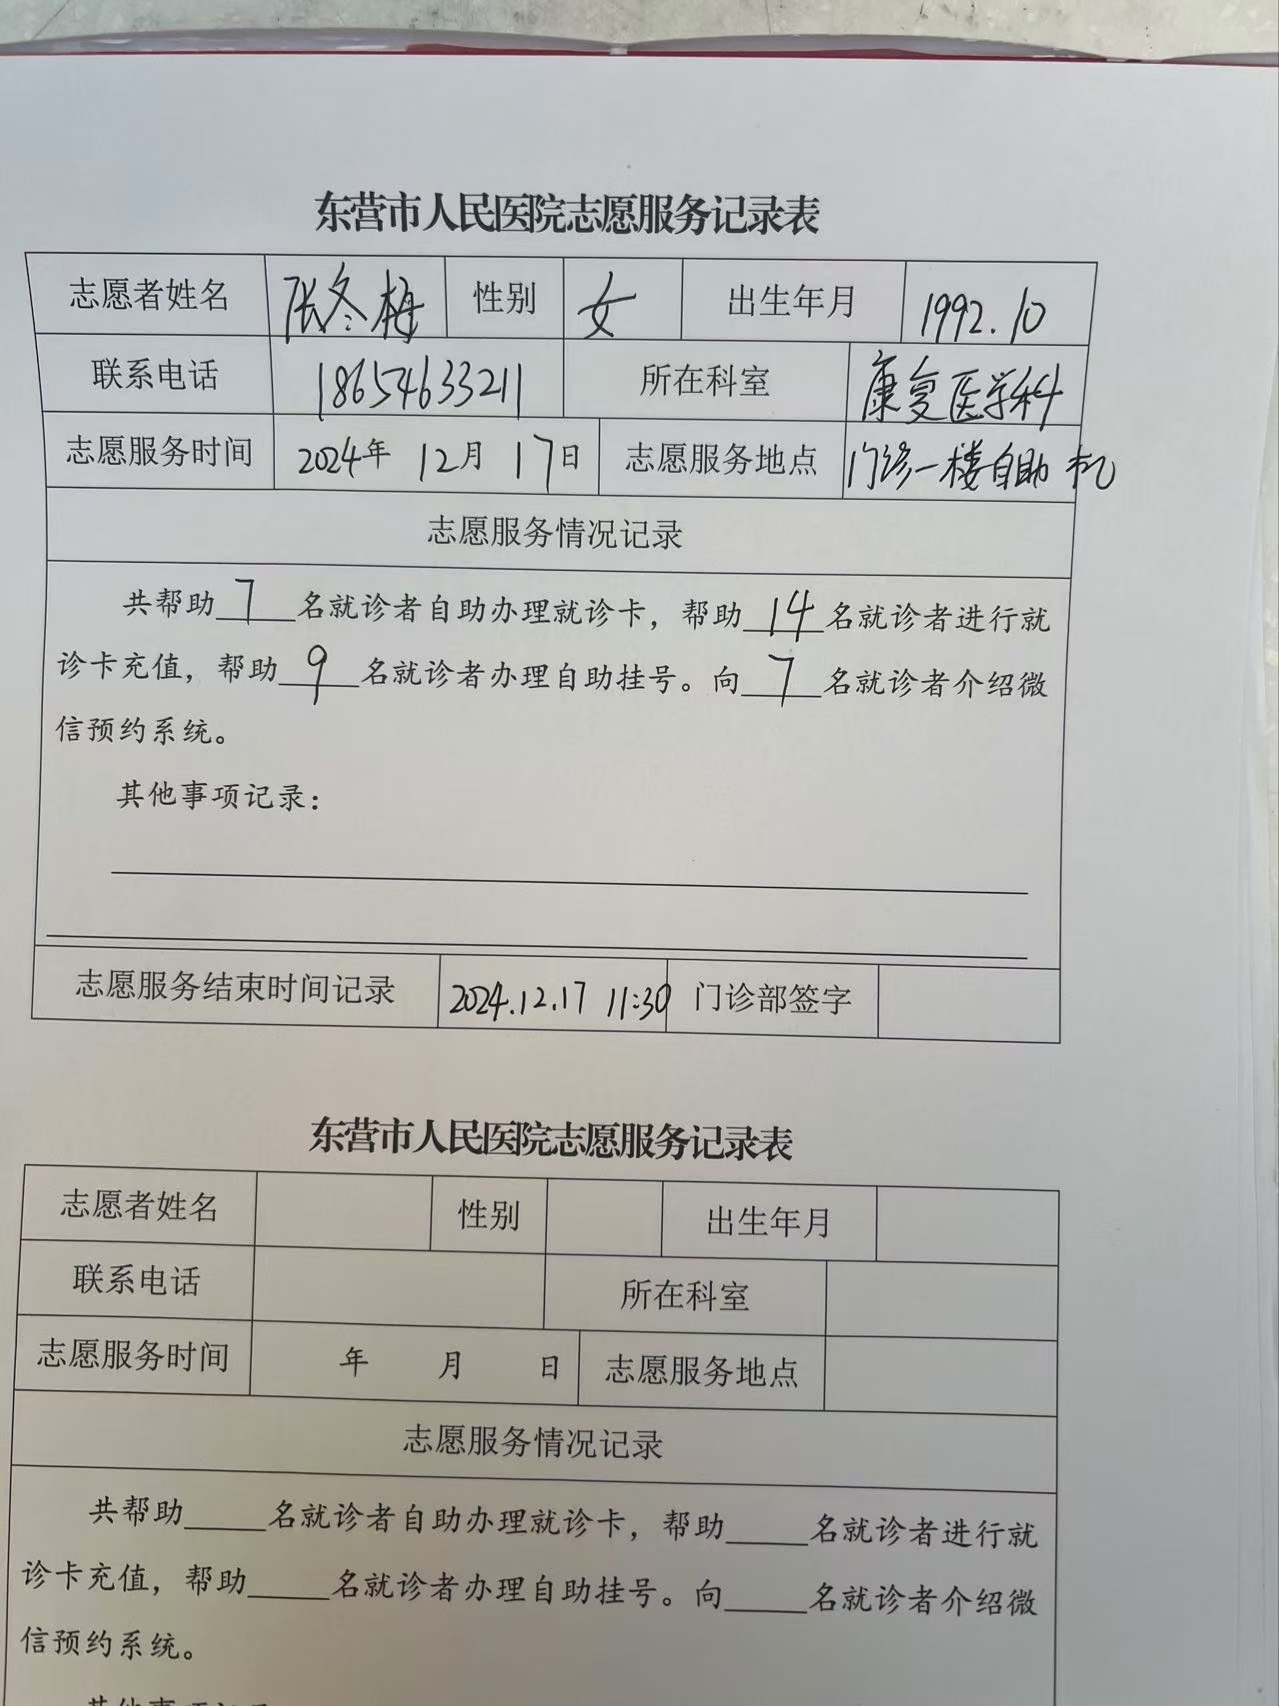 东营市人民医院志愿服务记录表
志愿者姓名 张冬梅 性别 女 出生年月 1992.10
联系电话 18654633211 所在科室 康复医学科
志愿服务时间 2024年 12月 17日 志愿服务地点 门诊一楼自助机
志愿服务情况记录
共帮助 7 名就诊者自助办理就诊卡，帮助 14 名就诊者进行就
诊卡充值，帮助 9 名就诊者办理自助挂号。向 7 名就诊者介绍微
信预约系统。
其他事项记录：
志愿服务结束时间记录 2024.12.17 11:30 门诊部签字
东营市人民医院志愿服务记录表
志愿者姓名 性别 出生年月
联系电话 所在科室
志愿服务时间 年 月 日 志愿服务地点
志愿服务情况记录
共帮助____名就诊者自助办理就诊卡，帮助____名就诊者进行就
诊卡充值，帮助____名就诊者办理自助挂号。向____名就诊者介绍微
信预约系统。